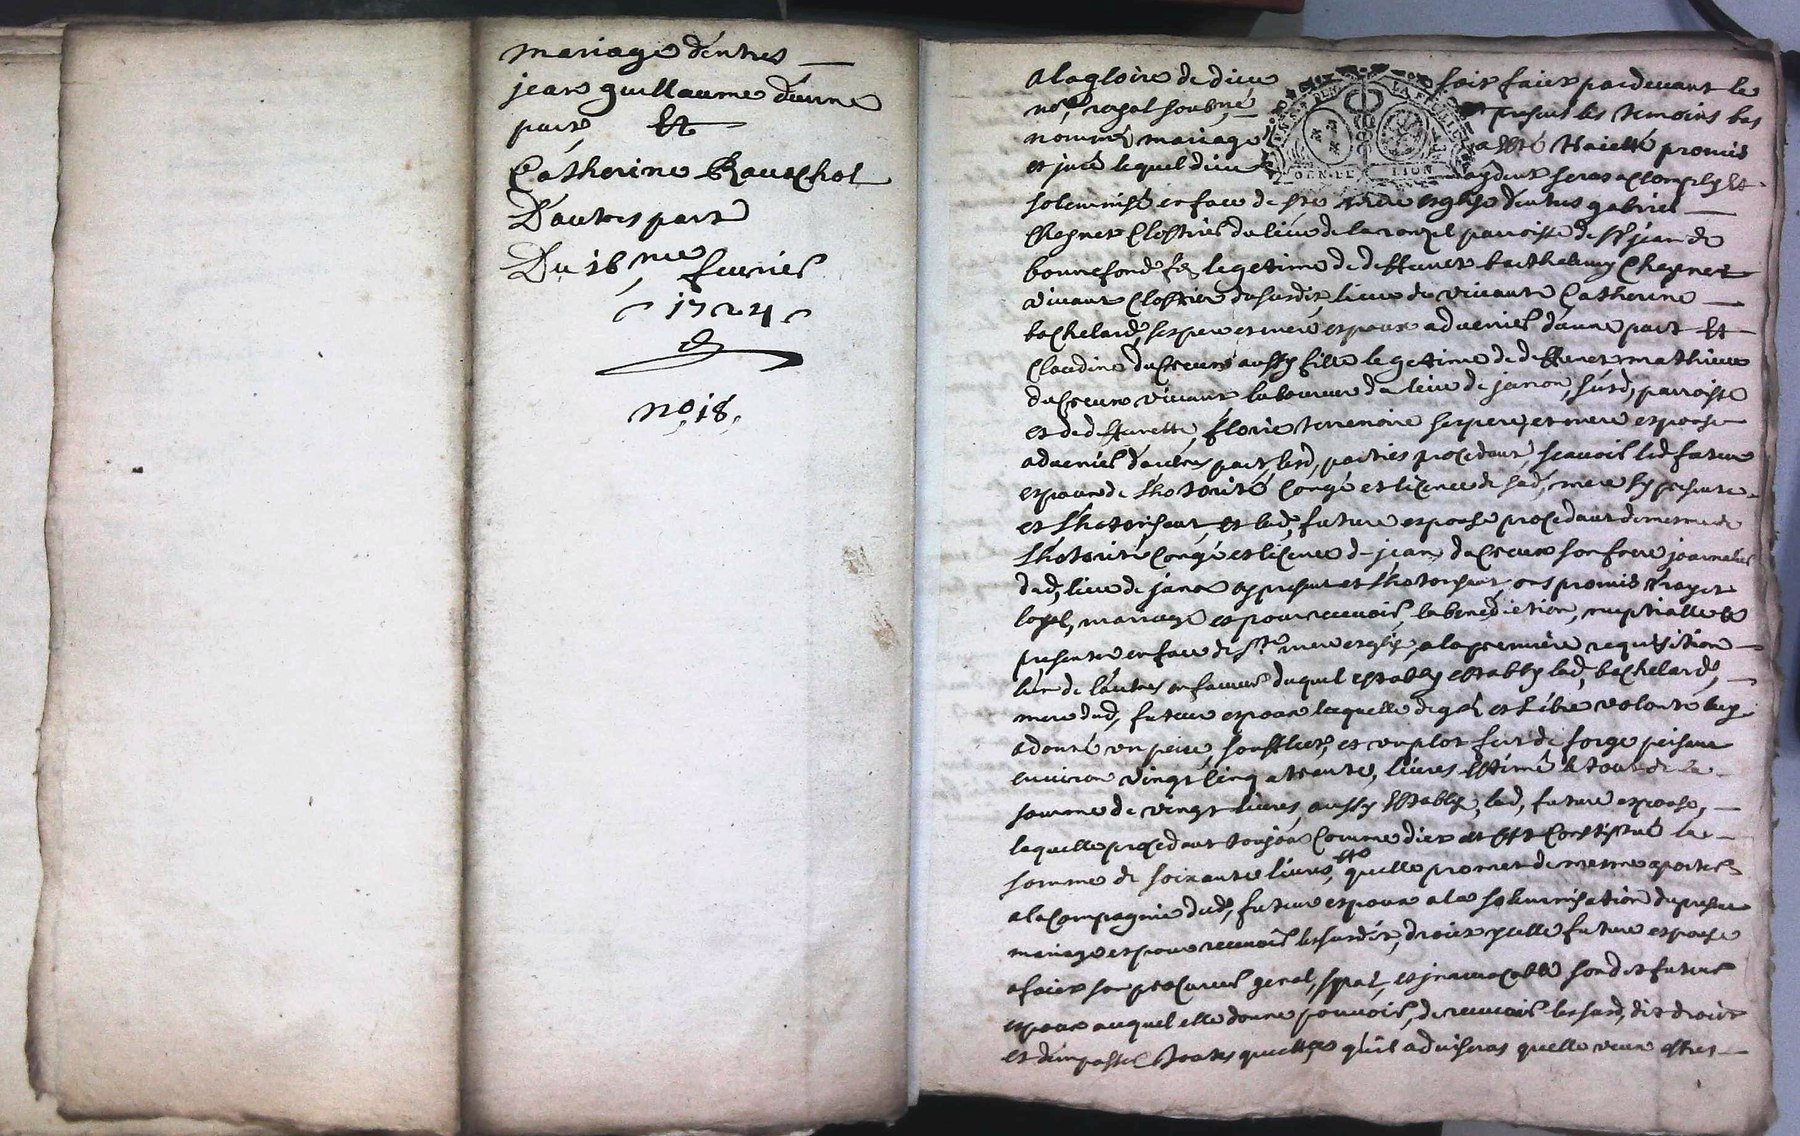 mariage dentres
jean guillaume d'eune
part Et
Catherine Rauschol
D'autres part
Du 16 me feurier
1724
no, 18,
A la gloire de dieu soit faict pardeuant le
no.re royal soubné presens les temoins bas
nommés mariage a esté traietté promis
et juré lequel dieu aydent seras acComply et
solemnisé en face de ste mere esglise dentres gabriel
Cheynet Clostrier du lieu de paroisse de st jean de
bonnefond fis legetime de deffunct barthellemy Cheynet
viuant Clostrier du susdit lieu de viuante Catherine
bachelard, ses pere et mere espoux aduenir d'une part Et
Claudine aussy fille legettime de deffunct mathieu
viuant laboureur du lieu de janon, susd, parroisse
et de deffunctte, florie terrenoire ses pere, et mere espouse
aduenir d'autres part, lesd, parties procedant, scauoir led futur
espoux de Lhotorité Congé et liCence de sad, mere Cy presente
et Lhotorisant, et lad, future espouse procedant de mesme de
Lhotorité Congé et liCence de jean son frere journalier
dud, lieu de janon Cy present et Lhotorisant, ont promis vray et
loyal, mariage et pour receuoir, la benediction, nuptialle se
presenter en face de ste mere esglise, a la premiere requisition
lun de lautres en faueur duquel establie establie lad, bachelard,
mere dud, futur espoux laquelle de gré et Libre volonté luy
a donné vn peire, soufflets, et vn plot fert de forge peisant
enuiron vingt Cinq a trante, liures estimé le tout de la
somme de vingt liures, aussy establie, lad, future espouse,
laquelle procedant toujour Comme dict et est Constitué la
somme de soixante liures, quelle promet de mesme aporter
a la Compagnie dud, futur espoux a la solemnisation du present
mariage et pour receuoir les susdit, droict ycelle future espouse
a faict son procureur general, spal, et jrreuocable sondit futur
espoux auquel elle donne pouuoir, de receuoir les susd, dit droict
et d'en passer toutes quittances qu'il aduiseras quelle veux estres